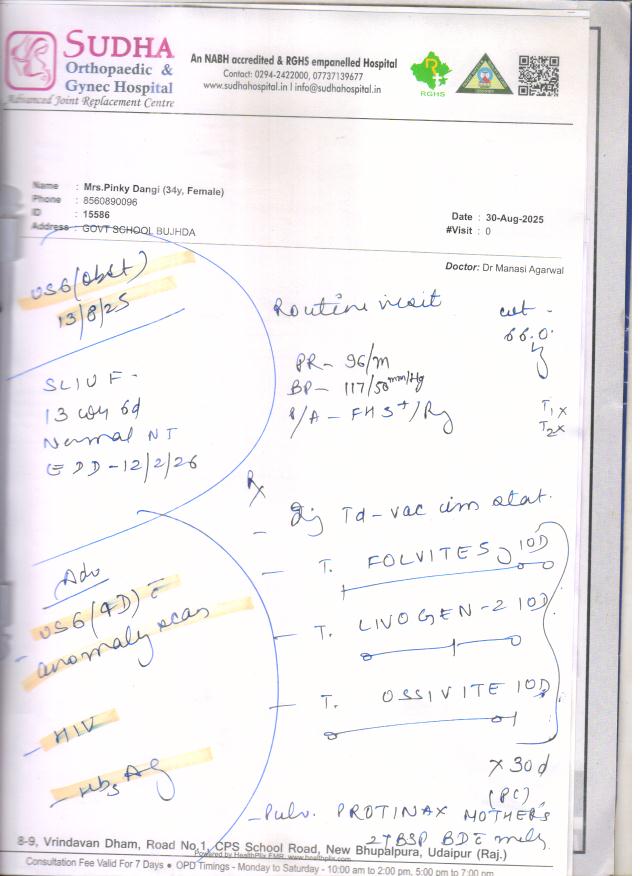 SUDHA
Orthopaedic &
Gynec Hospital
Advanced Joint Replacement Centre
An NABH accredited & RGHS empanelled Hospital
Contact: 0294-2422000, 07737139677
www.sudhahospital.in I info@sudhahospital.in
RGHS
Name : Mrs.Pinky Dangi (34y, Female)
Phone : 8560890096
ID : 15586
Address : GOVT SCHOOL BUJHDA
Date : 30-Aug-2025
#Visit : 0
Doctor: Dr Manasi Agarwal
USG (obst)
13/8/25
SLIUF-
13 wk 6d
Normal NT
EDD-12/2/26
Routine visit
wt -
66.0
PR- 96/m
BP- 117/50 mm/Hg
P/A - FHS+/Rg
T1x
T2x
Rx
- Inj Td-vac im stat.
- T. FOLVITE 5 OD
- T. LIVOGEN-Z OD
- T. OSSIVITE OD
x 30d
(PC)
- Pulv. PROTINAX MOTHER'S
2TBSP BD c milk
Adv
- USG (4D) c
anomaly scan
- HIV
- HbsAg
8-9, Vrindavan Dham, Road No.1, CPS School Road, New Bhupalpura, Udaipur (Raj.)
Powered by HealthPlix EMR. www.healthplix.com
Consultation Fee Valid For 7 Days ● OPD Timings - Monday to Saturday - 10:00 am to 2:00 pm, 5:00 pm to 7:00 pm